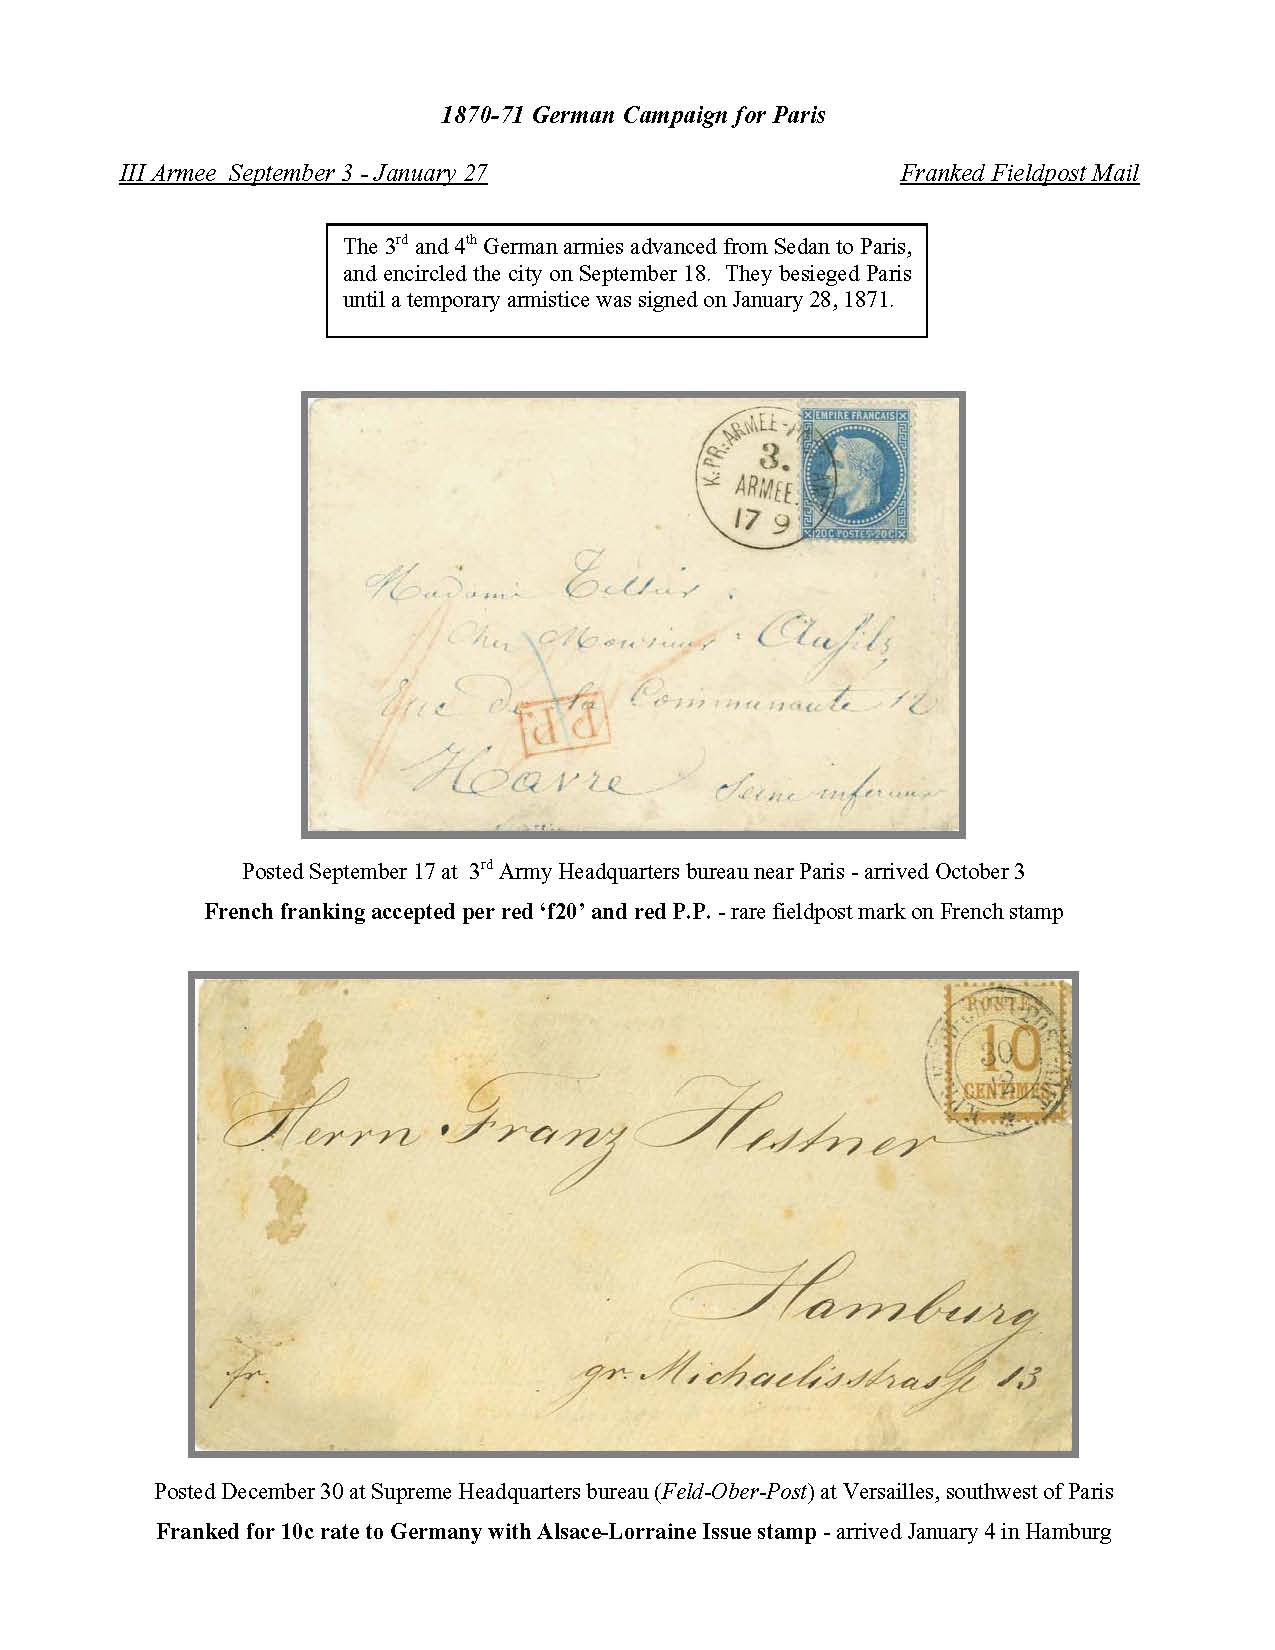 1870-71 German Campaign for Paris
III Armee September 3 - January 27
Franked Fieldpost Mail
The 3rd and 4th German armies advanced from Sedan to Paris,
and encircled the city on September 18. They besieged Paris
until a temporary armistice was signed on January 28, 1871.
K:PR:ARMEE-
3.
ARMEE.
17 9
EMPIRE FRANCAIS
20C POSTES 20C
Madame Tellier
Cher Monsieur
Rue de la Communauté 12
P.P.
Havre Seine inferieure
Posted September 17 at 3rd Army Headquarters bureau near Paris - arrived October 3
French franking accepted per red ‘f20’ and red P.P. - rare fieldpost mark on French stamp
POSTES
10
CENTIMES
30
12
Herrn Franz Hestner
Hamburg
fr. gr. Michaelisstrasse 13
Posted December 30 at Supreme Headquarters bureau (Feld-Ober-Post) at Versailles, southwest of Paris
Franked for 10c rate to Germany with Alsace-Lorraine Issue stamp - arrived January 4 in Hamburg